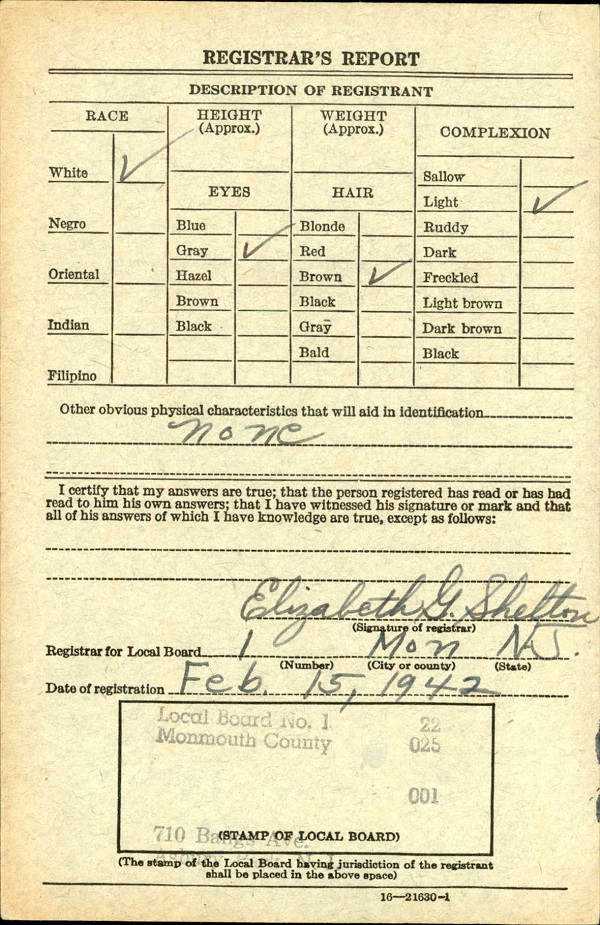 REGISTRAR'S REPORT
DESCRIPTION OF REGISTRANT
RACE
HEIGHT
(Approx.)
WEIGHT
(Approx.)
COMPLEXION
White ✓
Negro
Oriental
Indian
Filipino
EYES
Blue
Gray ✓
Hazel
Brown
Black
HAIR
Blonde
Red
Brown ✓
Black
Gray
Bald
Sallow
Light ✓
Ruddy
Dark
Freckled
Light brown
Dark brown
Black
Other obvious physical characteristics that will aid in identification
none
I certify that my answers are true; that the person registered has read or has had
read to him his own answers; that I have witnessed his signature or mark and that
all of his answers of which I have knowledge are true, except as follows:
Elizabeth G. Shelton
(Signature of registrar)
Registrar for Local Board 1 Mon N.J.
(Number) (City or county) (State)
Date of registration Feb. 15, 1942
Local Board No. 1 22
Monmouth County 025
001
710 Bangs Ave.
(STAMP OF LOCAL BOARD)
(The stamp of the Local Board having jurisdiction of the registrant
shall be placed in the above space)
16—21630-1